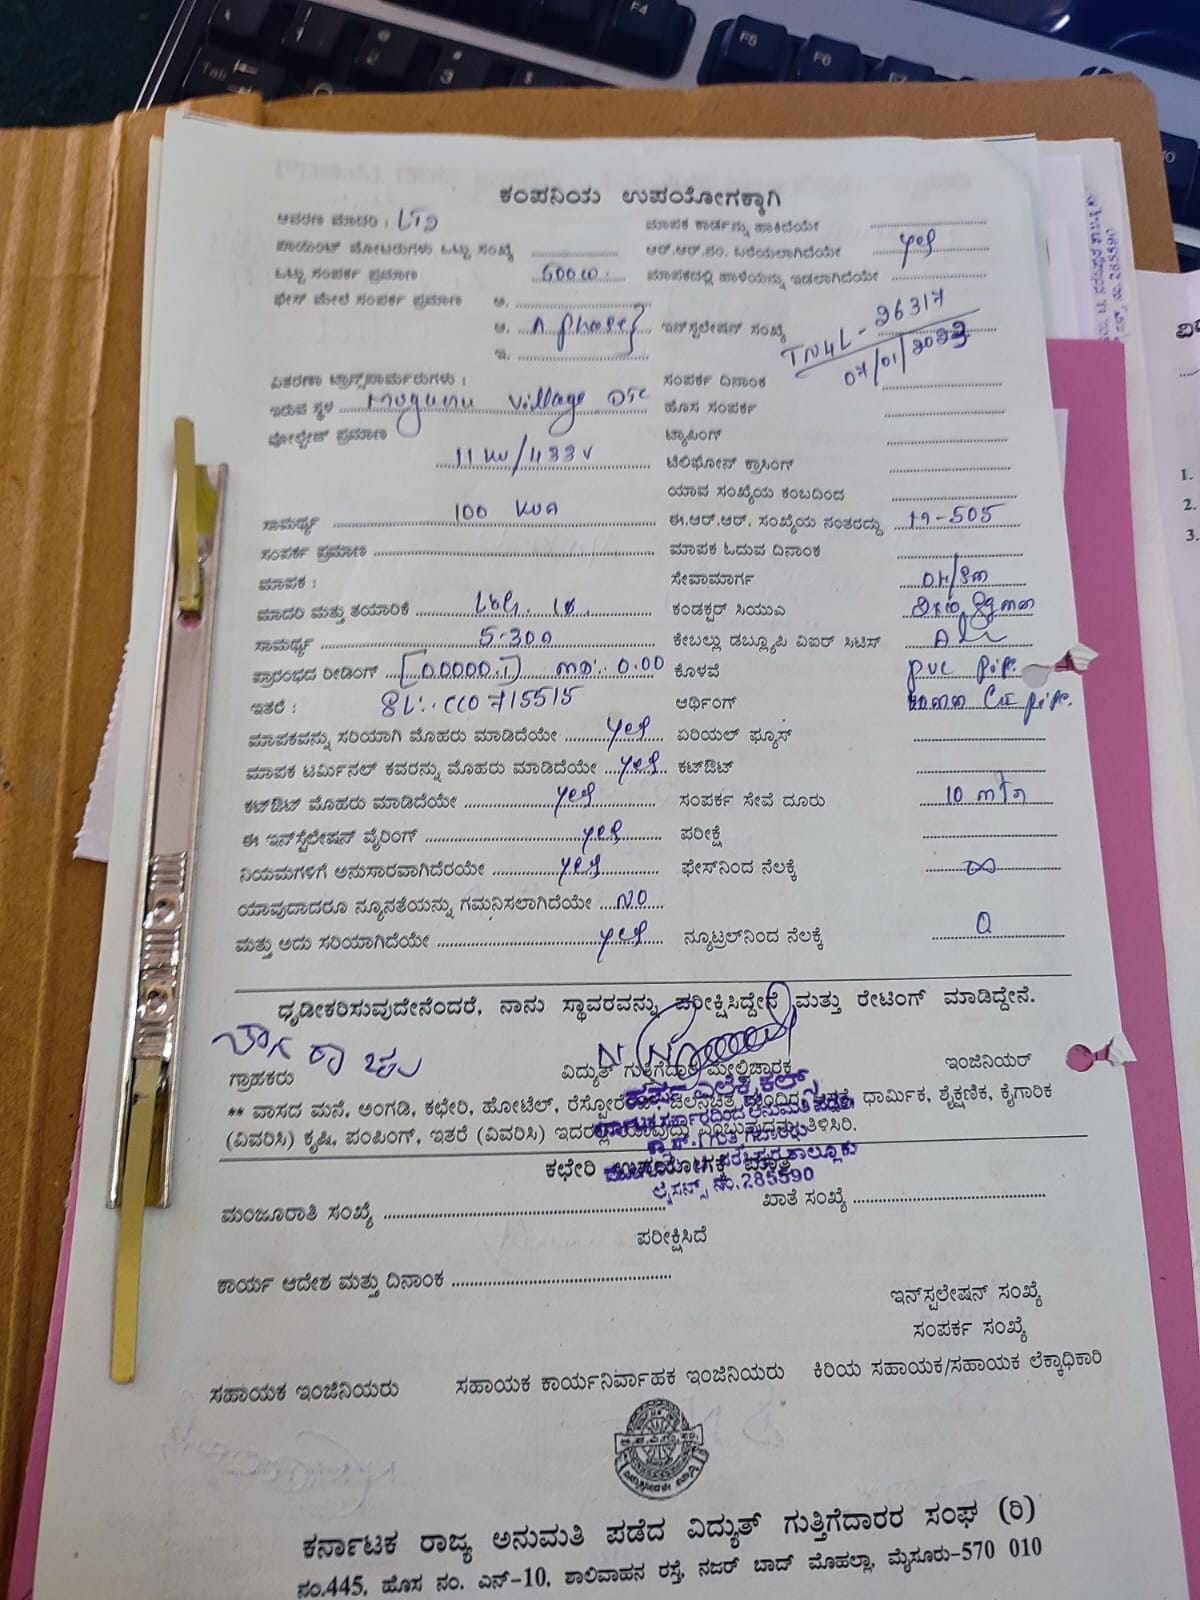 ಕಂಪನಿಯ ಉಪಯೋಗಕ್ಕಾಗಿ
ಆವರಣ ಮಾದರಿ : LT2 ಮಾಪಕ ಕಾರ್ಡನ್ನು ಹಾಕಿದೆಯೇ
ಪಾಯಿಂಟ್ ಮೋಟರುಗಳು ಒಟ್ಟು ಸಂಖ್ಯೆ ಆರ್.ಆರ್.ನಂ. ಬರೆಯಲಾಗಿದೆಯೇ yes
ಒಟ್ಟು ಸಂಪರ್ಕ ಪ್ರಮಾಣ 500w. ಮಾಪಕದಲ್ಲಿ ಹಾಳೆಯನ್ನು ಇಡಲಾಗಿದೆಯೇ
ಫೇಸ್ ಮೇಲೆ ಸಂಪರ್ಕ ಪ್ರಮಾಣ ಅ.
ಆ. phase ಇನ್‌ಸ್ಟಲೇಷನ್ ಸಂಖ್ಯೆ TN4L-26317
ಇ. 07/01/2023
ವಿತರಣಾ ಟ್ರಾನ್ಸ್‌ಫಾರ್ಮರುಗಳು : ಸಂಪರ್ಕ ದಿನಾಂಕ
ಇರುವ ಸ್ಥಳ Muguru Village DTC ಹೊಸ ಸಂಪರ್ಕ
ವೋಲ್ಟೇಜ್ ಪ್ರಮಾಣ ಟ್ಯಾಪಿಂಗ್
11 KV/433V ಟೆಲಿಫೋನ್ ಕ್ರಾಸಿಂಗ್
ಯಾವ ಸಂಖ್ಯೆಯ ಕಂಬದಿಂದ
ಸಾಮರ್ಥ್ಯ 100 KVA ಈ.ಆರ್.ಆರ್. ಸಂಖ್ಯೆಯ ನಂತರದ್ದು 19-505
ಸಂಪರ್ಕ ಪ್ರಮಾಣ ಮಾಪಕ ಓದುವ ದಿನಾಂಕ
ಮಾಪಕ : ಸೇವಾಮಾರ್ಗ OH/
ಮಾದರಿ ಮತ್ತು ತಯಾರಿಕೆ ಕಂಡಕ್ಟರ್ ಸಿಯುಎ
ಸಾಮರ್ಥ್ಯ 5-30A ಕೇಬಲ್ಲು ಡಬ್ಲ್ಯೂಪಿ ವಿಐಆರ್ ಸಿಟಿಸ್
ಪ್ರಾರಂಭದ ರೀಡಿಂಗ್ [00000.1] MD:. 0.00 ಕೊಳವೆ PVC pipe.
ಇತರೆ : SL:. CCO 715515 ಆರ್ಥಿಂಗ್ CI pipe.
ಮಾಪಕವನ್ನು ಸರಿಯಾಗಿ ಮೊಹರು ಮಾಡಿದೆಯೇ yes ಏರಿಯಲ್ ಫ್ಯೂಸ್
ಮಾಪಕ ಟರ್ಮಿನಲ್ ಕವರನ್ನು ಮೊಹರು ಮಾಡಿದೆಯೇ yes ಕಟ್‌ಔಟ್
ಕಟ್‌ಔಟ್ ಮೊಹರು ಮಾಡಿದೆಯೇ yes ಸಂಪರ್ಕ ಸೇವೆ ದೂರು 10 mtr
ಈ ಇನ್‌ಸ್ಟೆಲೇಷನ್ ವೈರಿಂಗ್ yes ಪರೀಕ್ಷೆ
ನಿಯಮಗಳಿಗೆ ಅನುಸಾರವಾಗಿದೆರಯೇ yes ಫೇಸ್‌ನಿಂದ ನೆಲಕ್ಕೆ ∞
ಯಾವುದಾದರೂ ನ್ಯೂನತೆಯನ್ನು ಗಮನಿಸಲಾಗಿದೆಯೇ NO
ಮತ್ತು ಅದು ಸರಿಯಾಗಿದೆಯೇ yes ನ್ಯೂಟ್ರಲ್‌ನಿಂದ ನೆಲಕ್ಕೆ 0
ಧೃಡೀಕರಿಸುವುದೇನೆಂದರೆ, ನಾನು ಸ್ಥಾವರವನ್ನು ಪರೀಕ್ಷಿಸಿದ್ದೇನೆ ಮತ್ತು ರೇಟಿಂಗ್ ಮಾಡಿದ್ದೇನೆ.
ಗ್ರಾಹಕರು ವಿದ್ಯುತ್ ಗುತ್ತಿಗೆದಾರಿ ಮೇಲ್ವಿಚಾರಕ ಇಂಜಿನಿಯರ್
** ವಾಸದ ಮನೆ, ಅಂಗಡಿ, ಕಛೇರಿ, ಹೋಟೆಲ್, ಧಾರ್ಮಿಕ, ಶೈಕ್ಷಣಿಕ, ಕೈಗಾರಿಕ
(ವಿವರಿಸಿ) ಕೃಷಿ, ಪಂಪಿಂಗ್, ಇತರೆ (ವಿವರಿಸಿ) ಇದರಲ್ಲಿ ಯಾವುದು ಎಂಬುವುದನ್ನು ತಿಳಿಸಿರಿ.
ಕಛೇರಿ ಉಪಯೋಗಕ್ಕೆ ಮಾತ್ರ
ಲೈಸನ್ಸ್ ನಂ.285590
ಮಂಜೂರಾತಿ ಸಂಖ್ಯೆ ಖಾತೆ ಸಂಖ್ಯೆ
ಪರೀಕ್ಷಿಸಿದೆ
ಕಾರ್ಯ ಆದೇಶ ಮತ್ತು ದಿನಾಂಕ
ಇನ್‌ಸ್ಪಲೇಷನ್ ಸಂಖ್ಯೆ
ಸಂಪರ್ಕ ಸಂಖ್ಯೆ
ಸಹಾಯಕ ಇಂಜಿನಿಯರು ಸಹಾಯಕ ಕಾರ್ಯನಿರ್ವಾಹಕ ಇಂಜಿನಿಯರು ಕಿರಿಯ ಸಹಾಯಕ/ಸಹಾಯಕ ಲೆಕ್ಕಾಧಿಕಾರಿ
ಕರ್ನಾಟಕ ರಾಜ್ಯ ಅನುಮತಿ ಪಡೆದ ವಿದ್ಯುತ್ ಗುತ್ತಿಗೆದಾರರ ಸಂಘ (ರಿ)
ನಂ.445, ಹೊಸ ನಂ. ಎನ್-10, ಶಾಲಿವಾಹನ ರಸ್ತೆ, ನಜರ್ ಬಾದ್ ಮೊಹಲ್ಲಾ, ಮೈಸೂರು-570 010